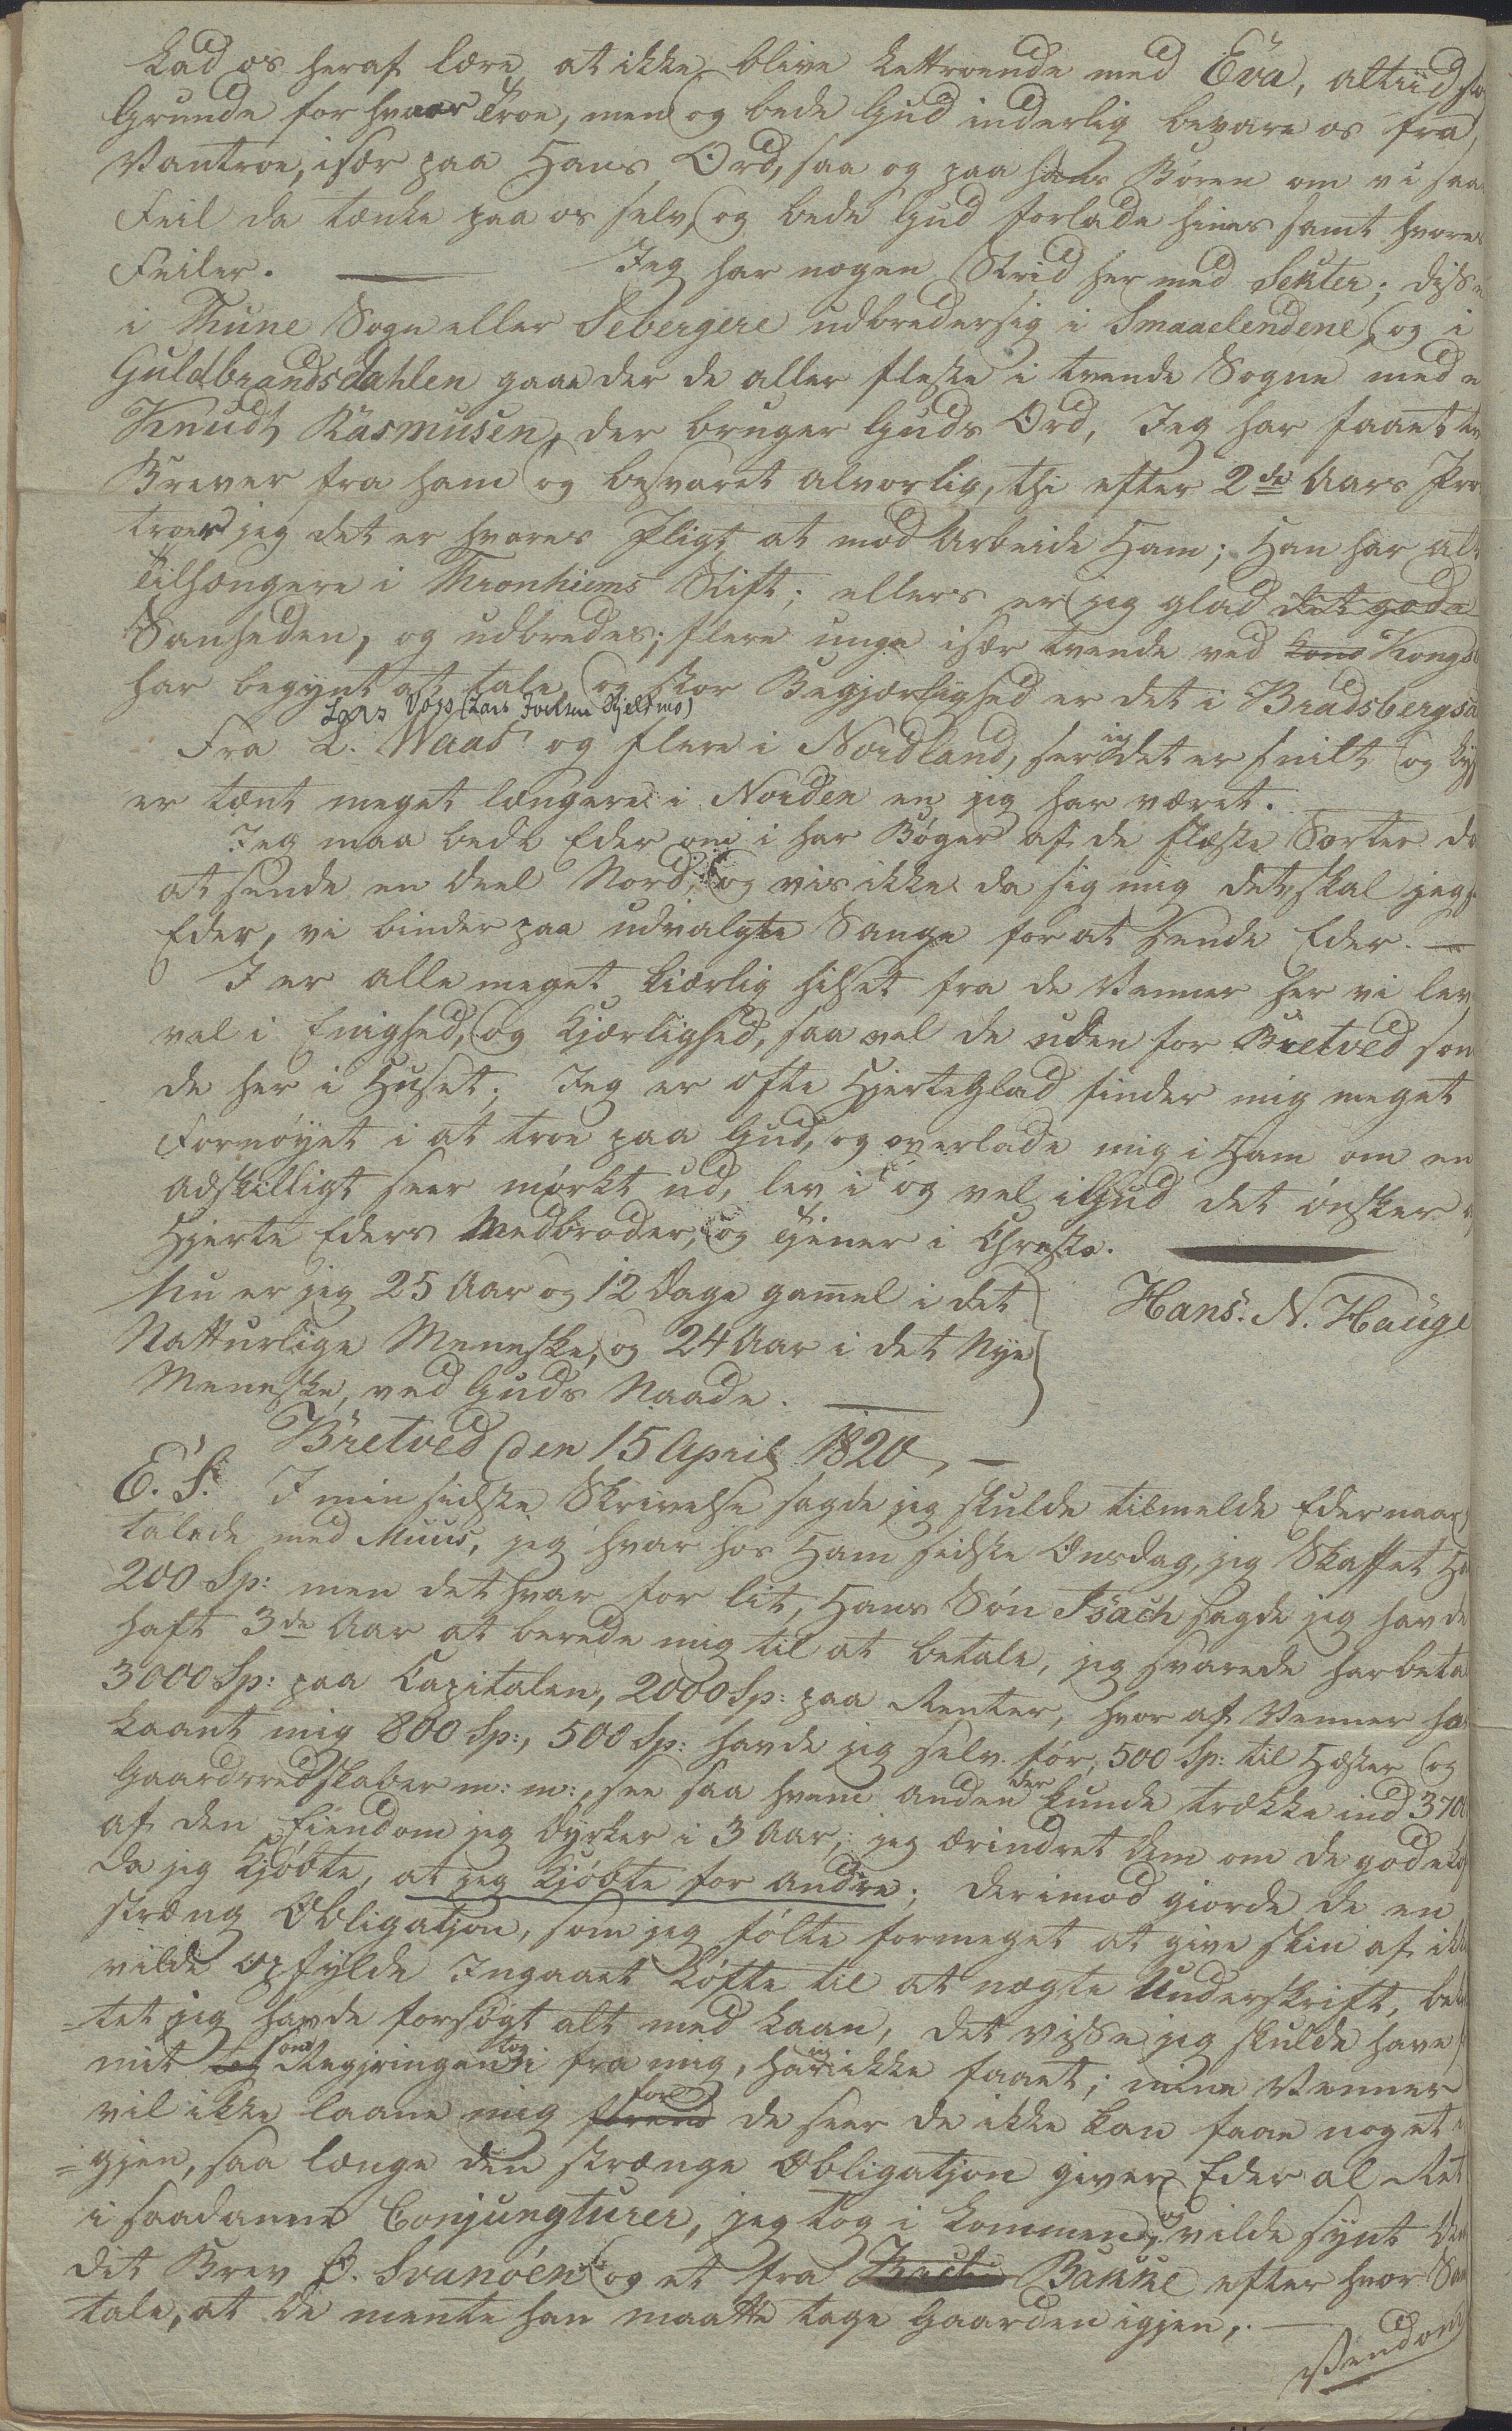 Lad os heraf lære, at ikke blive lettroende med Eva, altiid
Grunde for hvaar Troe, men og bede Gud inderlig bevare os fra
Vantroe, især paa Hans Ord, saa og paa hans Børen om vi saa
Feil da tænke paa os selv, og bede Gud forlade hines samt hvores
Feiler. — Jeg har nogen Strid her med Sekter; disse
i Thune Sogn eller Sebergere udbredersig i Smaaelendene, og i
Guldbrandsdahlen gaae der de aller fleste i tvende Sogne med
Knudt Rasmusen, der bruger Guds Ord, Jeg har faaet
Brever fra ham og besvaret alvorlig, thi efter 2de Aars
troer jeg det er hvores Pligt at mod Arbeide Ham; Han har alt
Tilhængere i Thronhiems Stift; ellers er jeg glad det gode
Sanheden, og udbredes; flere unge især tvende ved Kong Kongs
har begynt at tale og stor Begjærlighed er det i Bradsbergs
Lars Voss (Lars Jocksen Kjelsmo)
Fra L. Waas og flere i Nordland, ser jeg det er snilt og
er tænt meget længere i Norden en jeg har været.
Jeg maa bede Eder om i har Bøger af de fleste Sorter da
at sende en deel Nord, og vis ikke da sig mig det, skal jeg
Eder, vi binder paa udvalgte Sange for at sende Eder. —
I er alle meget kiærlig hilset fra de Venner her vi lev
vel i Enighed, og Kjærlighed, saa vel de uden for Bretved som
de her i Huset; Jeg er ofte HjerteGlad finder mig meget
Fornøyet i at troe paa Gud, og overlade mig i Ham om en
Adskilligt seer mørkt ud, lev i og vel i Gud det ønsker
Hjerte Eders Medbroder, og Tjener i Christo. —
Nu er jeg 25 Aar og 12 Dage gamel i det
Hans. N. Hauge
Natturlige Meneske, og 24 Aar i det Nye
Meneske, ved Guds Naade. —
Bretved den 15 April 1820, —
E. S. I min sidste Skrivelse sagde jeg skulde tilmelde Eder naar
talede med Muus, jeg hvar hos Ham sidste Onsdag, jeg Skaffet
200 Sp: men det hvar for lit, Hans Søn Isach sagde jeg havde
haft 3de Aar at berede mig til at betale, jeg svarede har beta
3000 Sp: paa Capitalen, 2000 Sp: paa Renter, hvor af Venner ha
laant mig 800 Sp:, 500 Sp: havde jeg selv før, 500 Sp: til Hæster og
Gaardsredskaber m: m:, see saa hvem anden der kunde trække ind 370
af den Eiendom jeg dyrker i 3 Aar; jeg ærindret dem om de gode
da jeg Kjøbte, at jeg Kjøbte for andre; derimod giorde de en
stræng Obligatjon, som jeg følte formeget at give skin af ikke
vilde opfylde Ingaaet Løfte til at nægte Underskrift, be
=tet jeg havde forsøgt alt med Laan, det visse jeg skulde have
mit som Regjeringen tog i fra mig, har jeg ikke faaet; mine Venner
vil ikke laane mig før de seer de ikke kan faae noget
=gjen, saa længe den strænge Obligatjon giver Eder al Ret
i saadanne Conjungturer, jeg tog i Lommen, og vilde synt
dit Brev O. Svanøen og et fra Bakke efter hvor
tale, at de mente han maatte tage Gaarden igjen,. —
Vend om